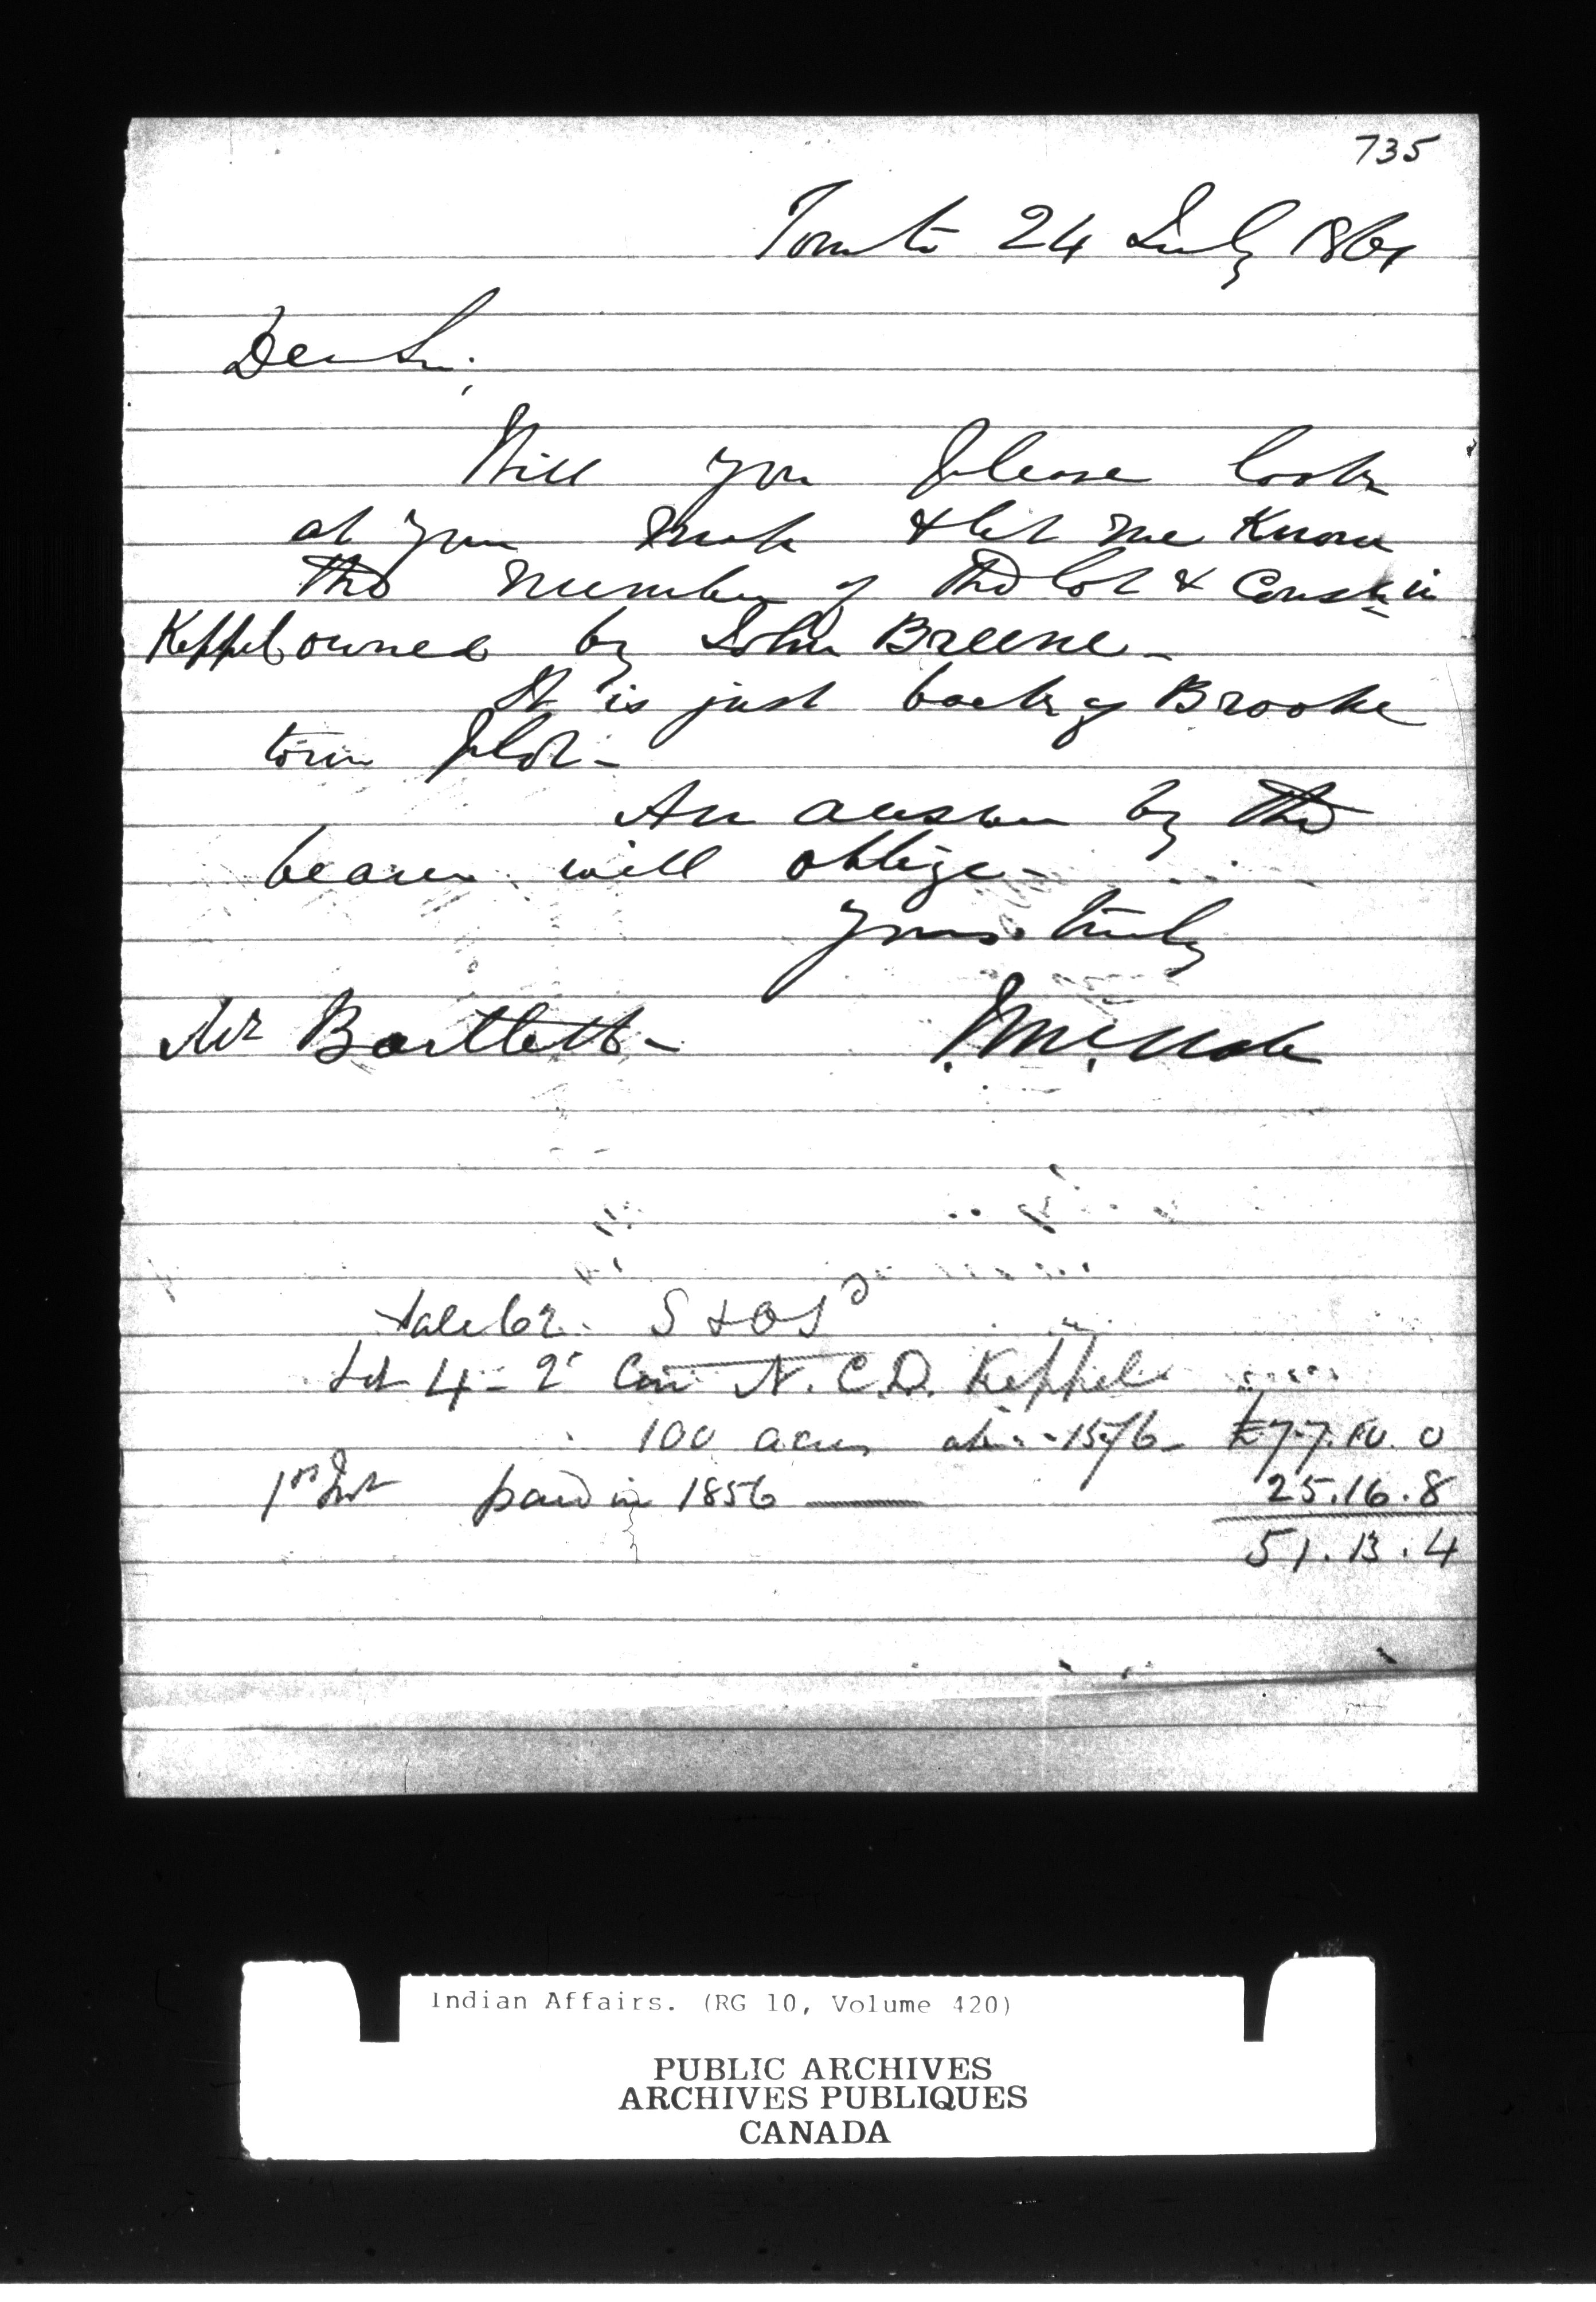 735
Toronto 24 July 1861
Dear Sir,
Will you please look
at your book & let me know
the number of the lot & Conssn in
Keppel owned by John Breene -
It is just back of Brooke
town plot -
An answer by the
bearer will oblige -
Yours truly
Mr Bartlett -
Sale 62.
Lot 4 - 2d Con N.C.D. Keppel
100 acres at - 15/6 - £77.10.0
1st Inst paid in 1856 — 25.16.8
51.13.4
Indian Affairs. (RG 10, Volume 420)
PUBLIC ARCHIVES
ARCHIVES PUBLIQUES
CANADA